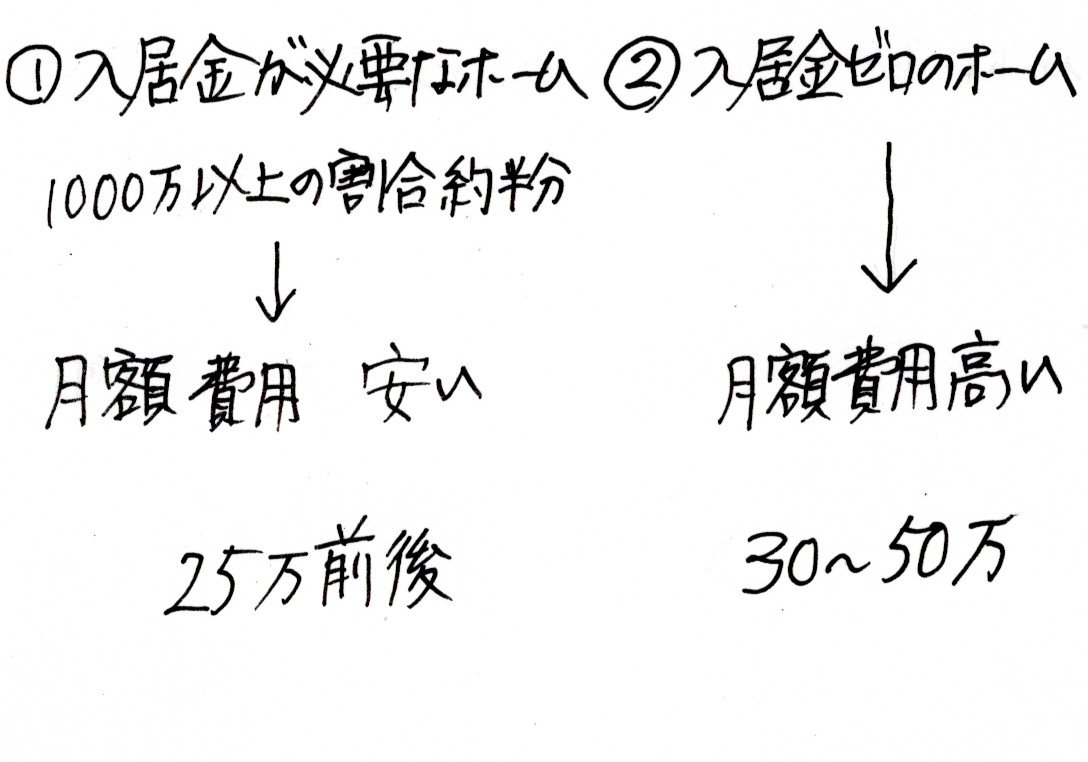 ①入居金が必要なホーム
1000万以上の割合約半分
↓
月額費用 安い
25万前後
②入居金ゼロのホーム
↓
月額費用高い
30〜50万